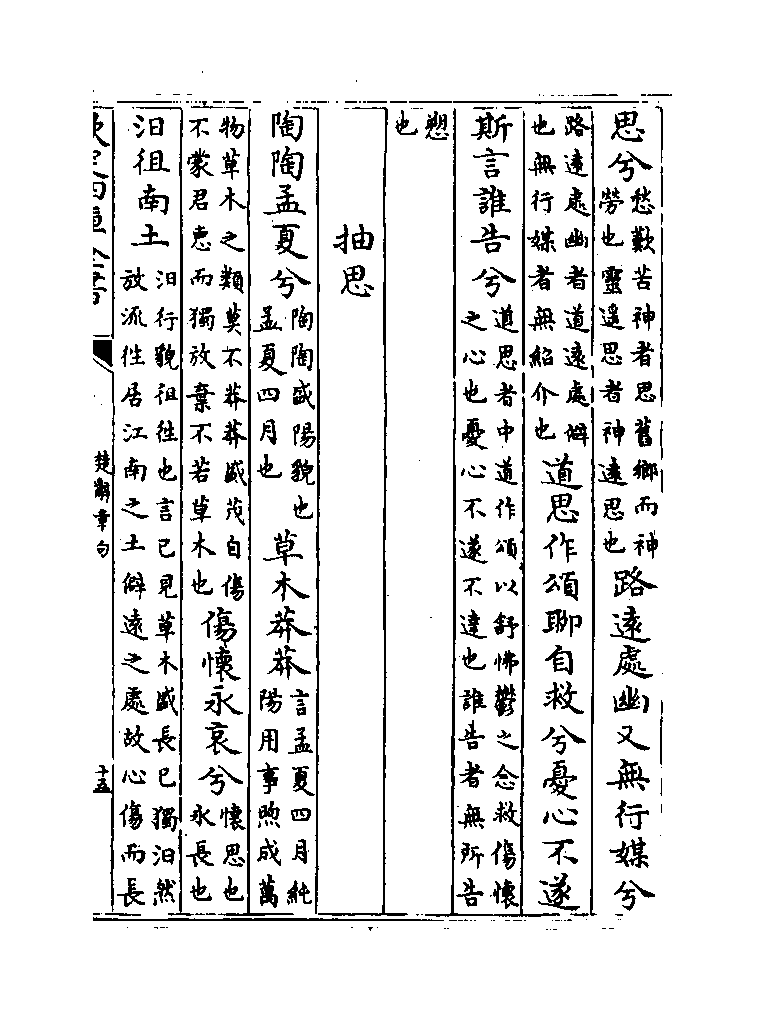 思兮愁歎苦神者思舊鄉而神勞也靈遥思者神遠思也路遠處幽又無行媒兮
路遠處幽者道遠處僻也無行媒者無紹介也道思作頌聊自救兮憂心不遂
斯言誰告兮道思者中道作頌以舒怫鬱之念救傷懷之心也憂心不遂不達也誰告者無所告
愬也
抽思
陶陶孟夏兮陶陶盛陽貌也孟夏四月也草木莽莽言孟夏四月純陽用事煦成萬
物草木之類莫不莽莽盛茂自傷不蒙君惠而獨放棄不若草木也傷懷永哀兮懷思也永長也
汨徂南土汨行貌徂往也言已見草木盛長已獨汨然放流往居江南之土僻遠之處故心傷而長
欽定四庫全書 楚辭章句 十五